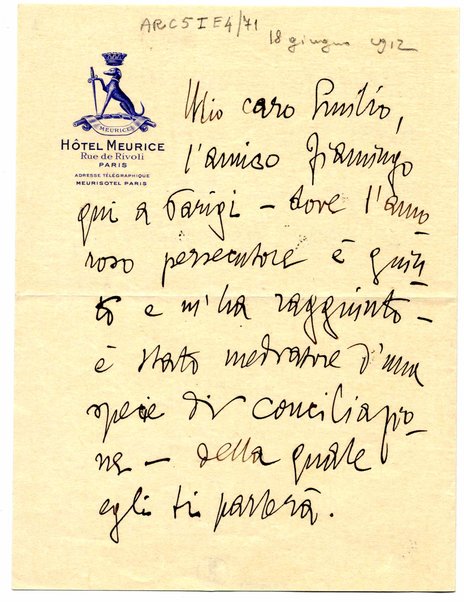 ARC5IE4/71
18 giugno 1912
MEURICE
HÔTEL MEURICE
Rue de Rivoli
PARIS
ADRESSE TÉLÉGRAPHIQUE
MEURISOTEL PARIS
Mio caro Emilio,
l'amico Fiamingo
qui a Parigi – dove l'amo-
roso persecutore è giun-
to e m'ha raggiunto –
è stato mediatore d'una
specie di conciliazio-
ne – della quale
egli ti parlerà.